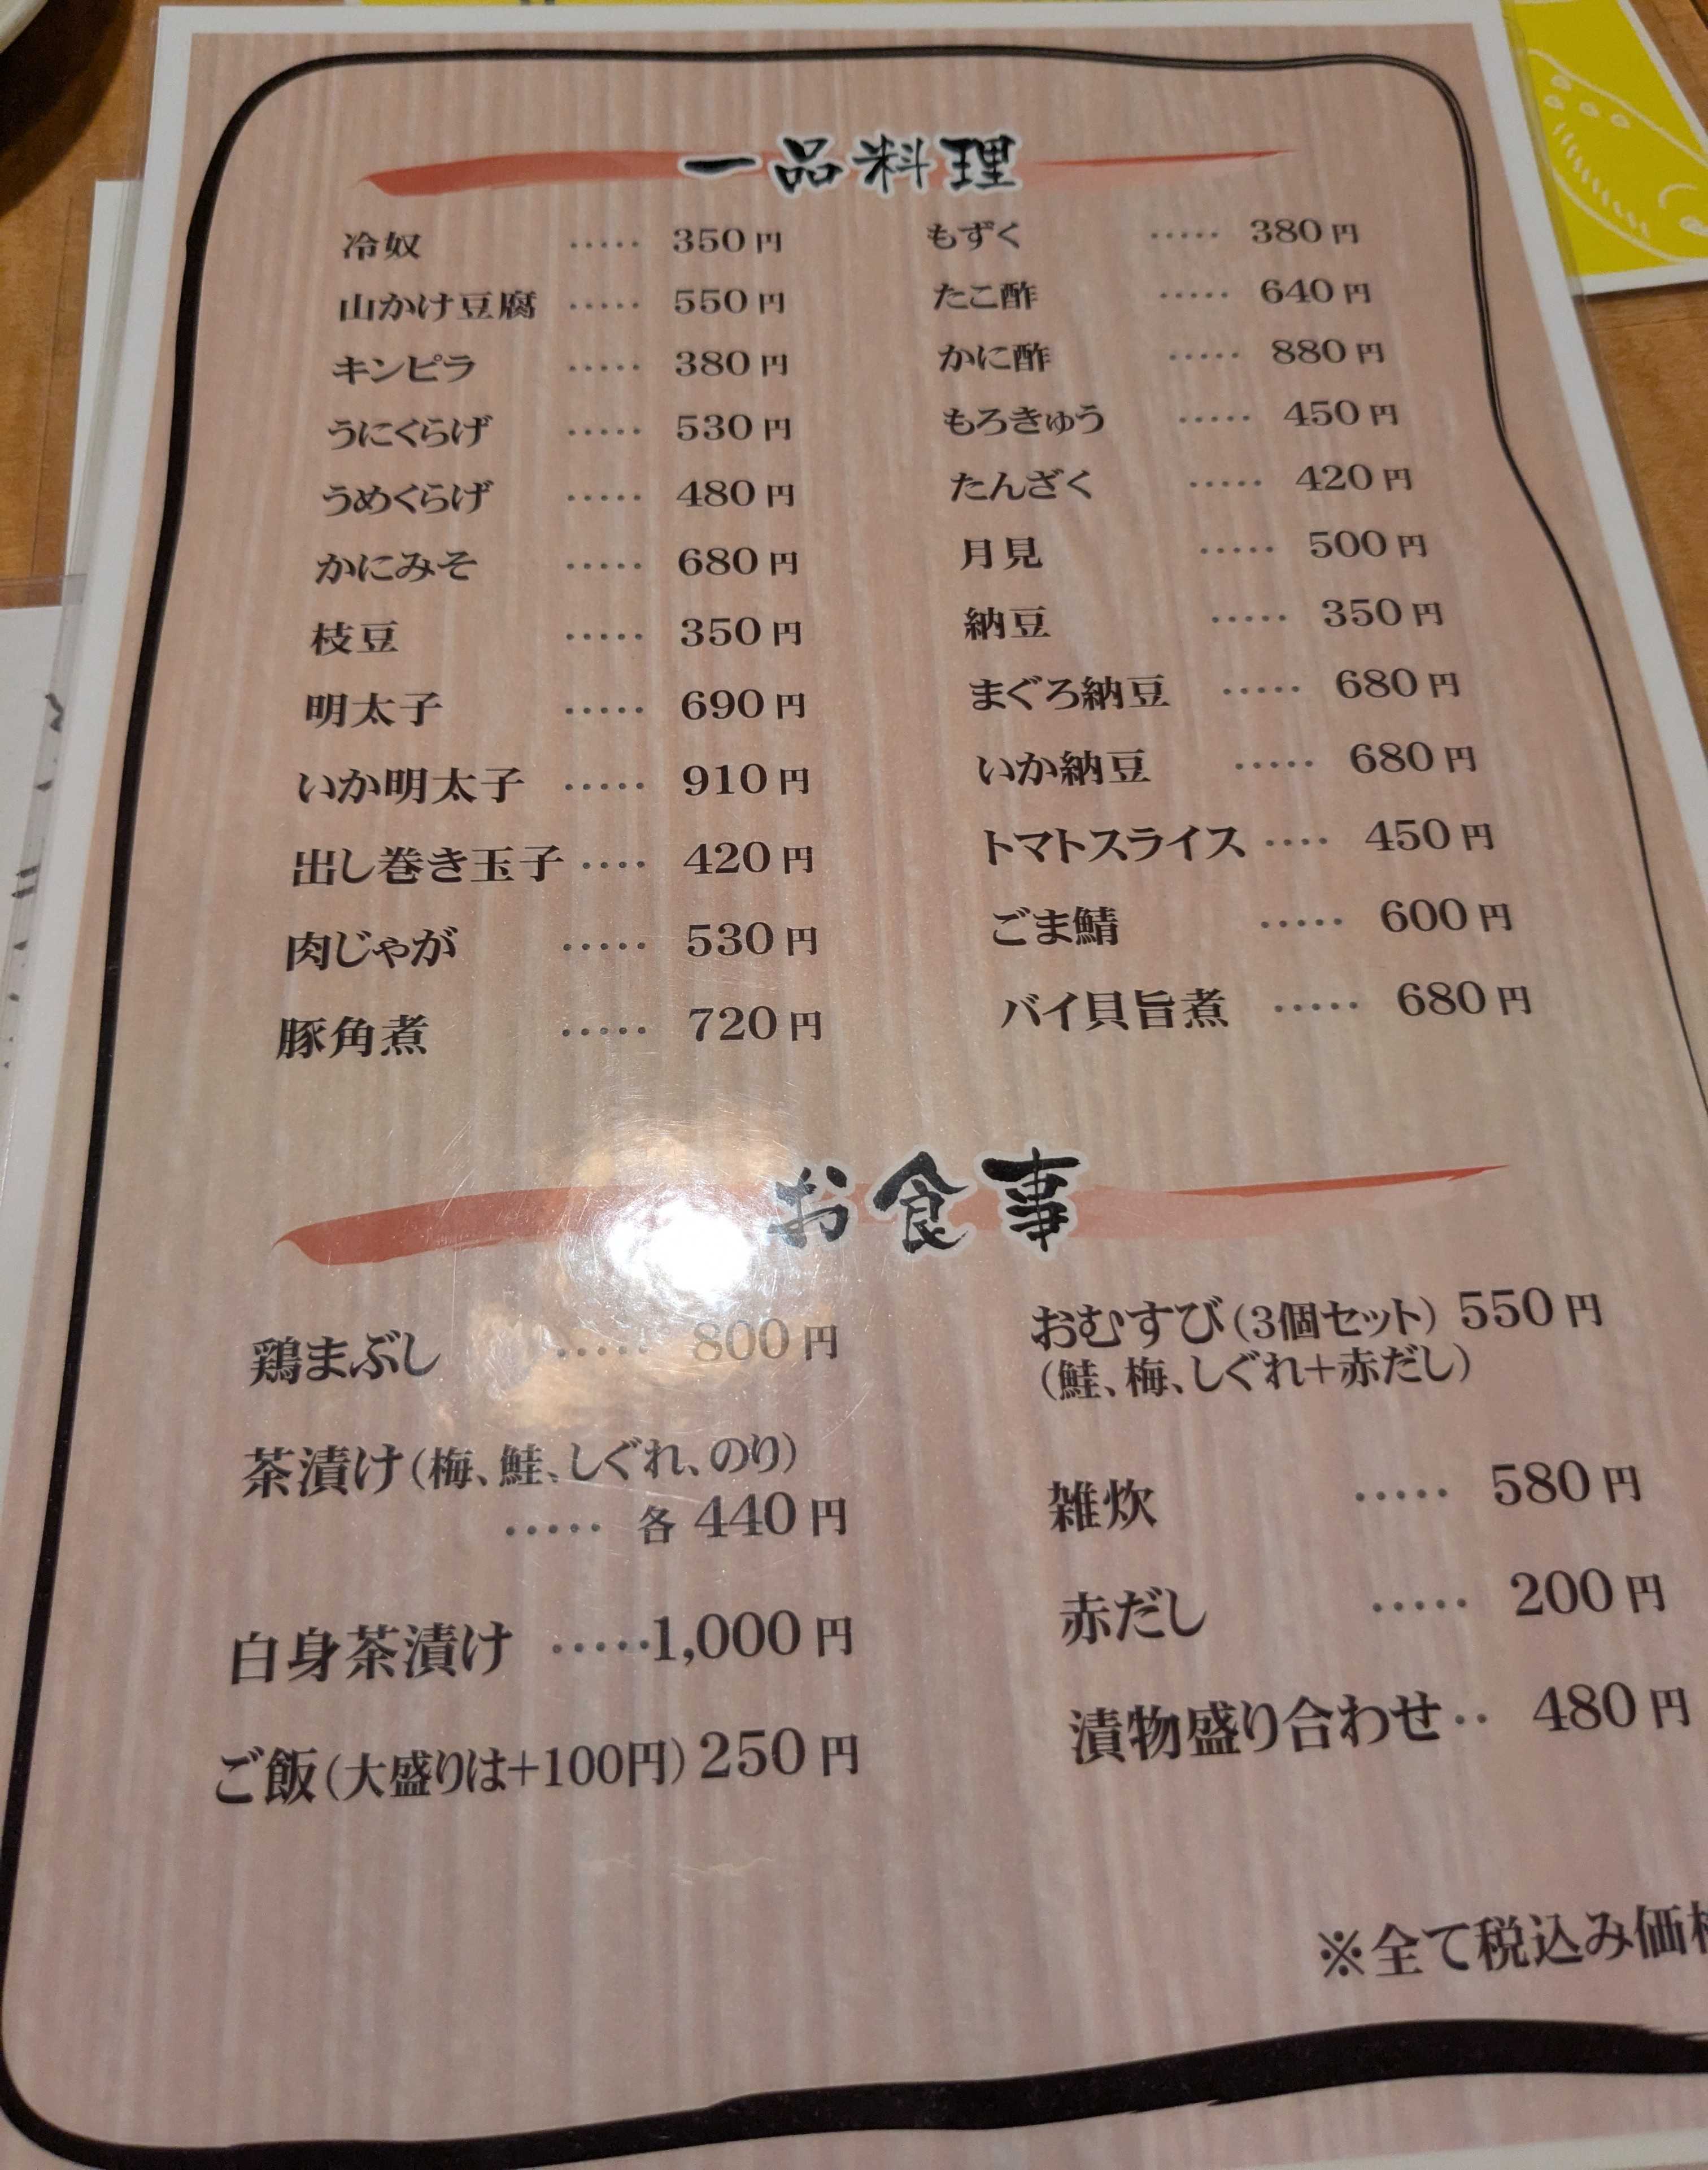 一品料理
冷奴 ····· 350円
山かけ豆腐 ····· 550円
キンピラ ····· 380円
うにくらげ ····· 530円
うめくらげ ····· 480円
かにみそ ····· 680円
枝豆 ····· 350円
明太子 ····· 690円
いか明太子 ····· 910円
出し巻き玉子 ···· 420円
肉じゃが ····· 530円
豚角煮 ····· 720円
もずく ····· 380円
たこ酢 ····· 640円
かに酢 ····· 880円
もろきゅう ····· 450円
たんざく ····· 420円
月見 ····· 500円
納豆 ····· 350円
まぐろ納豆 ····· 680円
いか納豆 ····· 680円
トマトスライス ···· 450円
ごま鯖 ····· 600円
バイ貝旨煮 ····· 680円
お食事
鶏まぶし ····· 800円
茶漬け(梅、鮭、しぐれ、のり)
····· 各 440円
白身茶漬け ·····1,000円
ご飯(大盛りは+100円) 250円
おむすび(3個セット) 550円
(鮭、梅、しぐれ+赤だし)
雑炊 ····· 580円
赤だし ····· 200円
漬物盛り合わせ ·· 480円
※全て税込み価